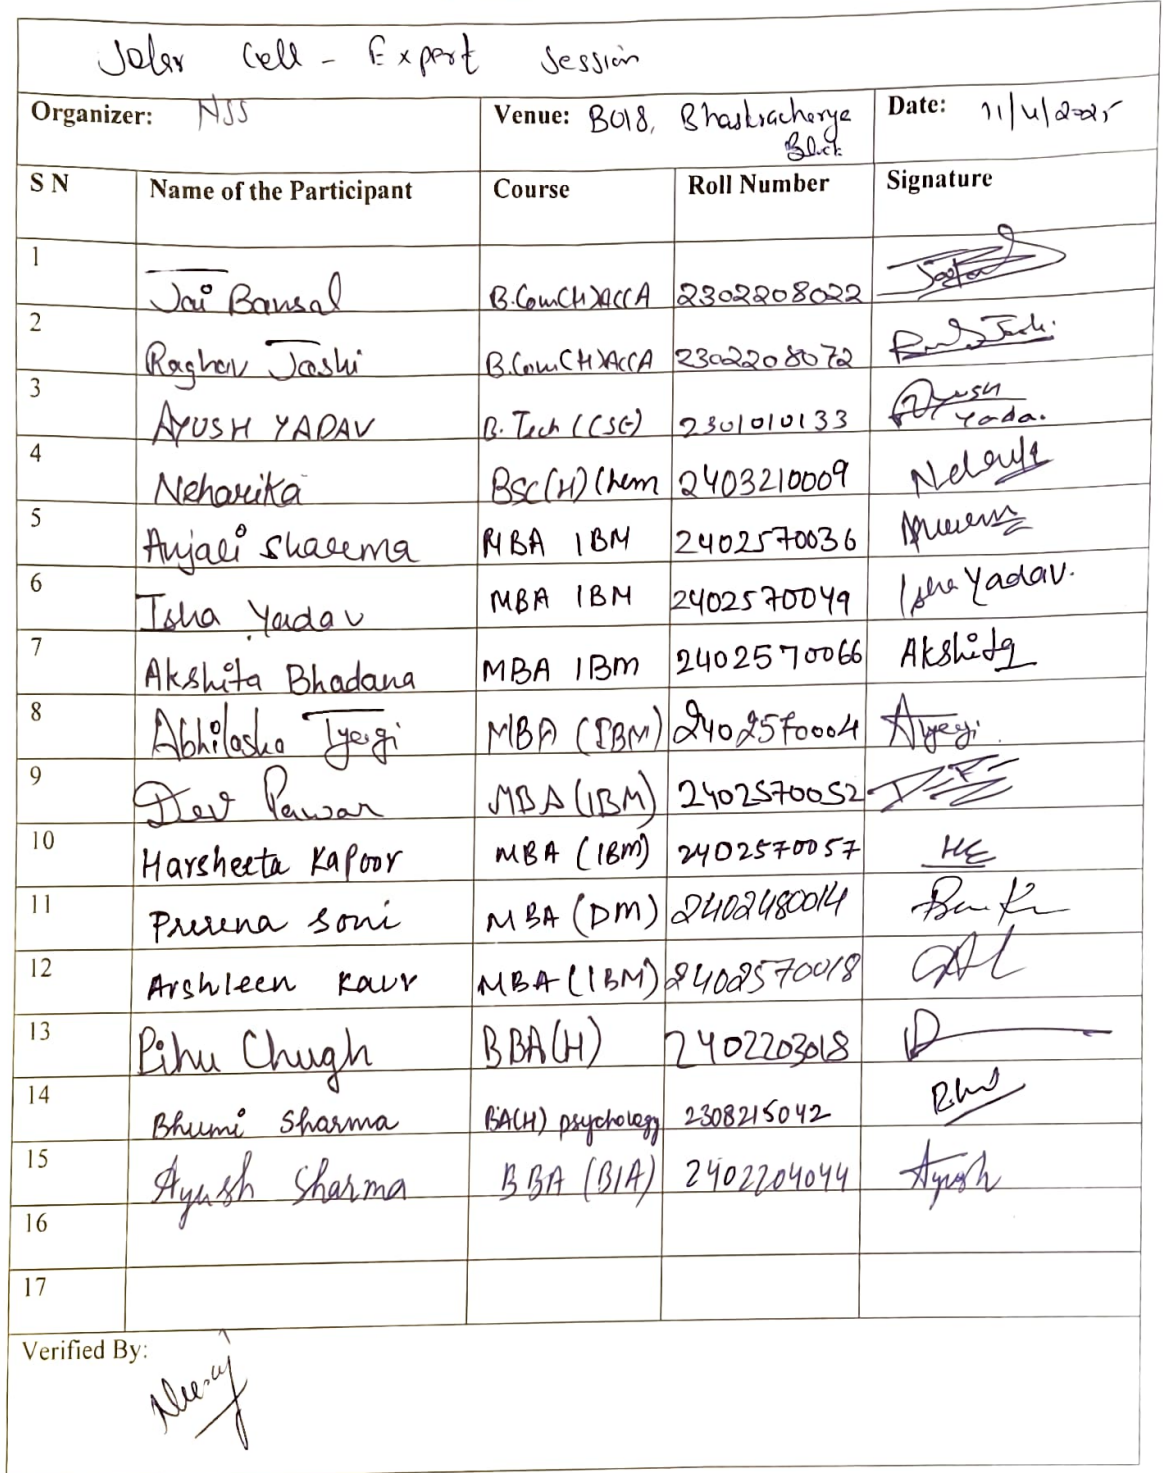 Solar Cell - Expert Session
Organizer: NSS Venue: B018, Bhaskracharya Block Date: 11/4/2025
S N Name of the Participant Course Roll Number Signature
1 Jai Bansal B.Com(H)ACCA 2302208022
2 Raghav Joshi B.Com(H)ACCA 2302208072
3 AYUSH YADAV B. Tech (CSE) 2301010133 Ayush Yadav.
4 Neharika BSC(H) Chem 2403210009
5 Anjali Sharma MBA IBM 2402570036
6 Isha Yadav MBA IBM 2402570049 Isha Yadav.
7 Akshita Bhadana MBA IBM 2402570066 Akshita
8 Abhilasha Tyagi MBA (IBM) 2402570004 ATyagi
9 Dev Pawar MBA (IBM) 2402570052
10 Harsheeta Kapoor MBA (IBM) 2402570057
11 Prerena Soni MBA (DM) 2402480014
12 Arshleen Kaur MBA (IBM) 2402570018
13 Pihu Chugh BBA(H) 2402203018
14 Bhumi Sharma BA(H) psychology 2308215042
15 Ayush Sharma BBA (BIA) 2402204044 Ayush
16
17
Verified By: Neeraj